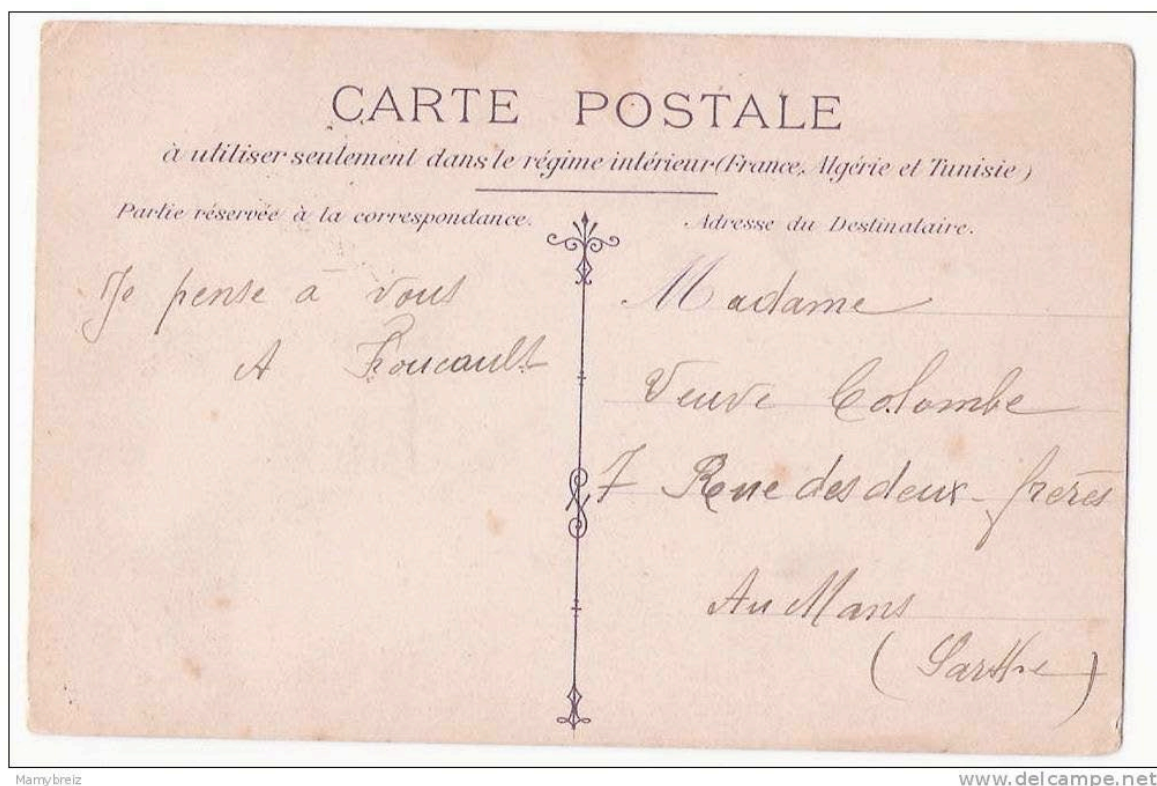 CARTE POSTALE
à utiliser seulement dans le régime intérieur (France, Algérie et Tunisie)
Partie réservée à la correspondance.
Je pense à vous
A Foucault
Adresse du Destinataire.
Madame
Veuve Colombe
7 Rue des deux-frères
Au Mans
(Sarthe)
Mamybreiz
www.delcampe.net